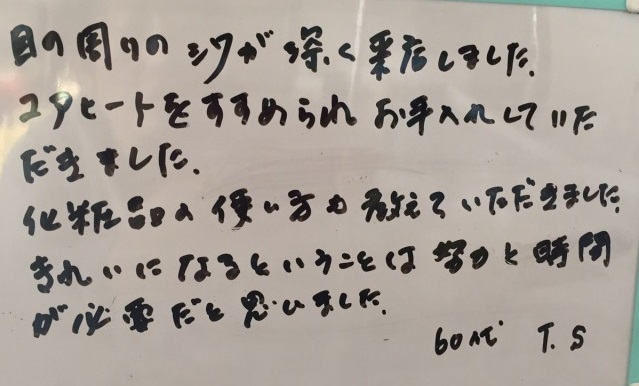 目の周りのシワが深く来店しました.
コアヒートをすすめられお手入れしていた
だきました.
化粧品の使い方も教えていただきました.
きれいになるということは努力と時間
が必要だと思いました.
60代 T.S